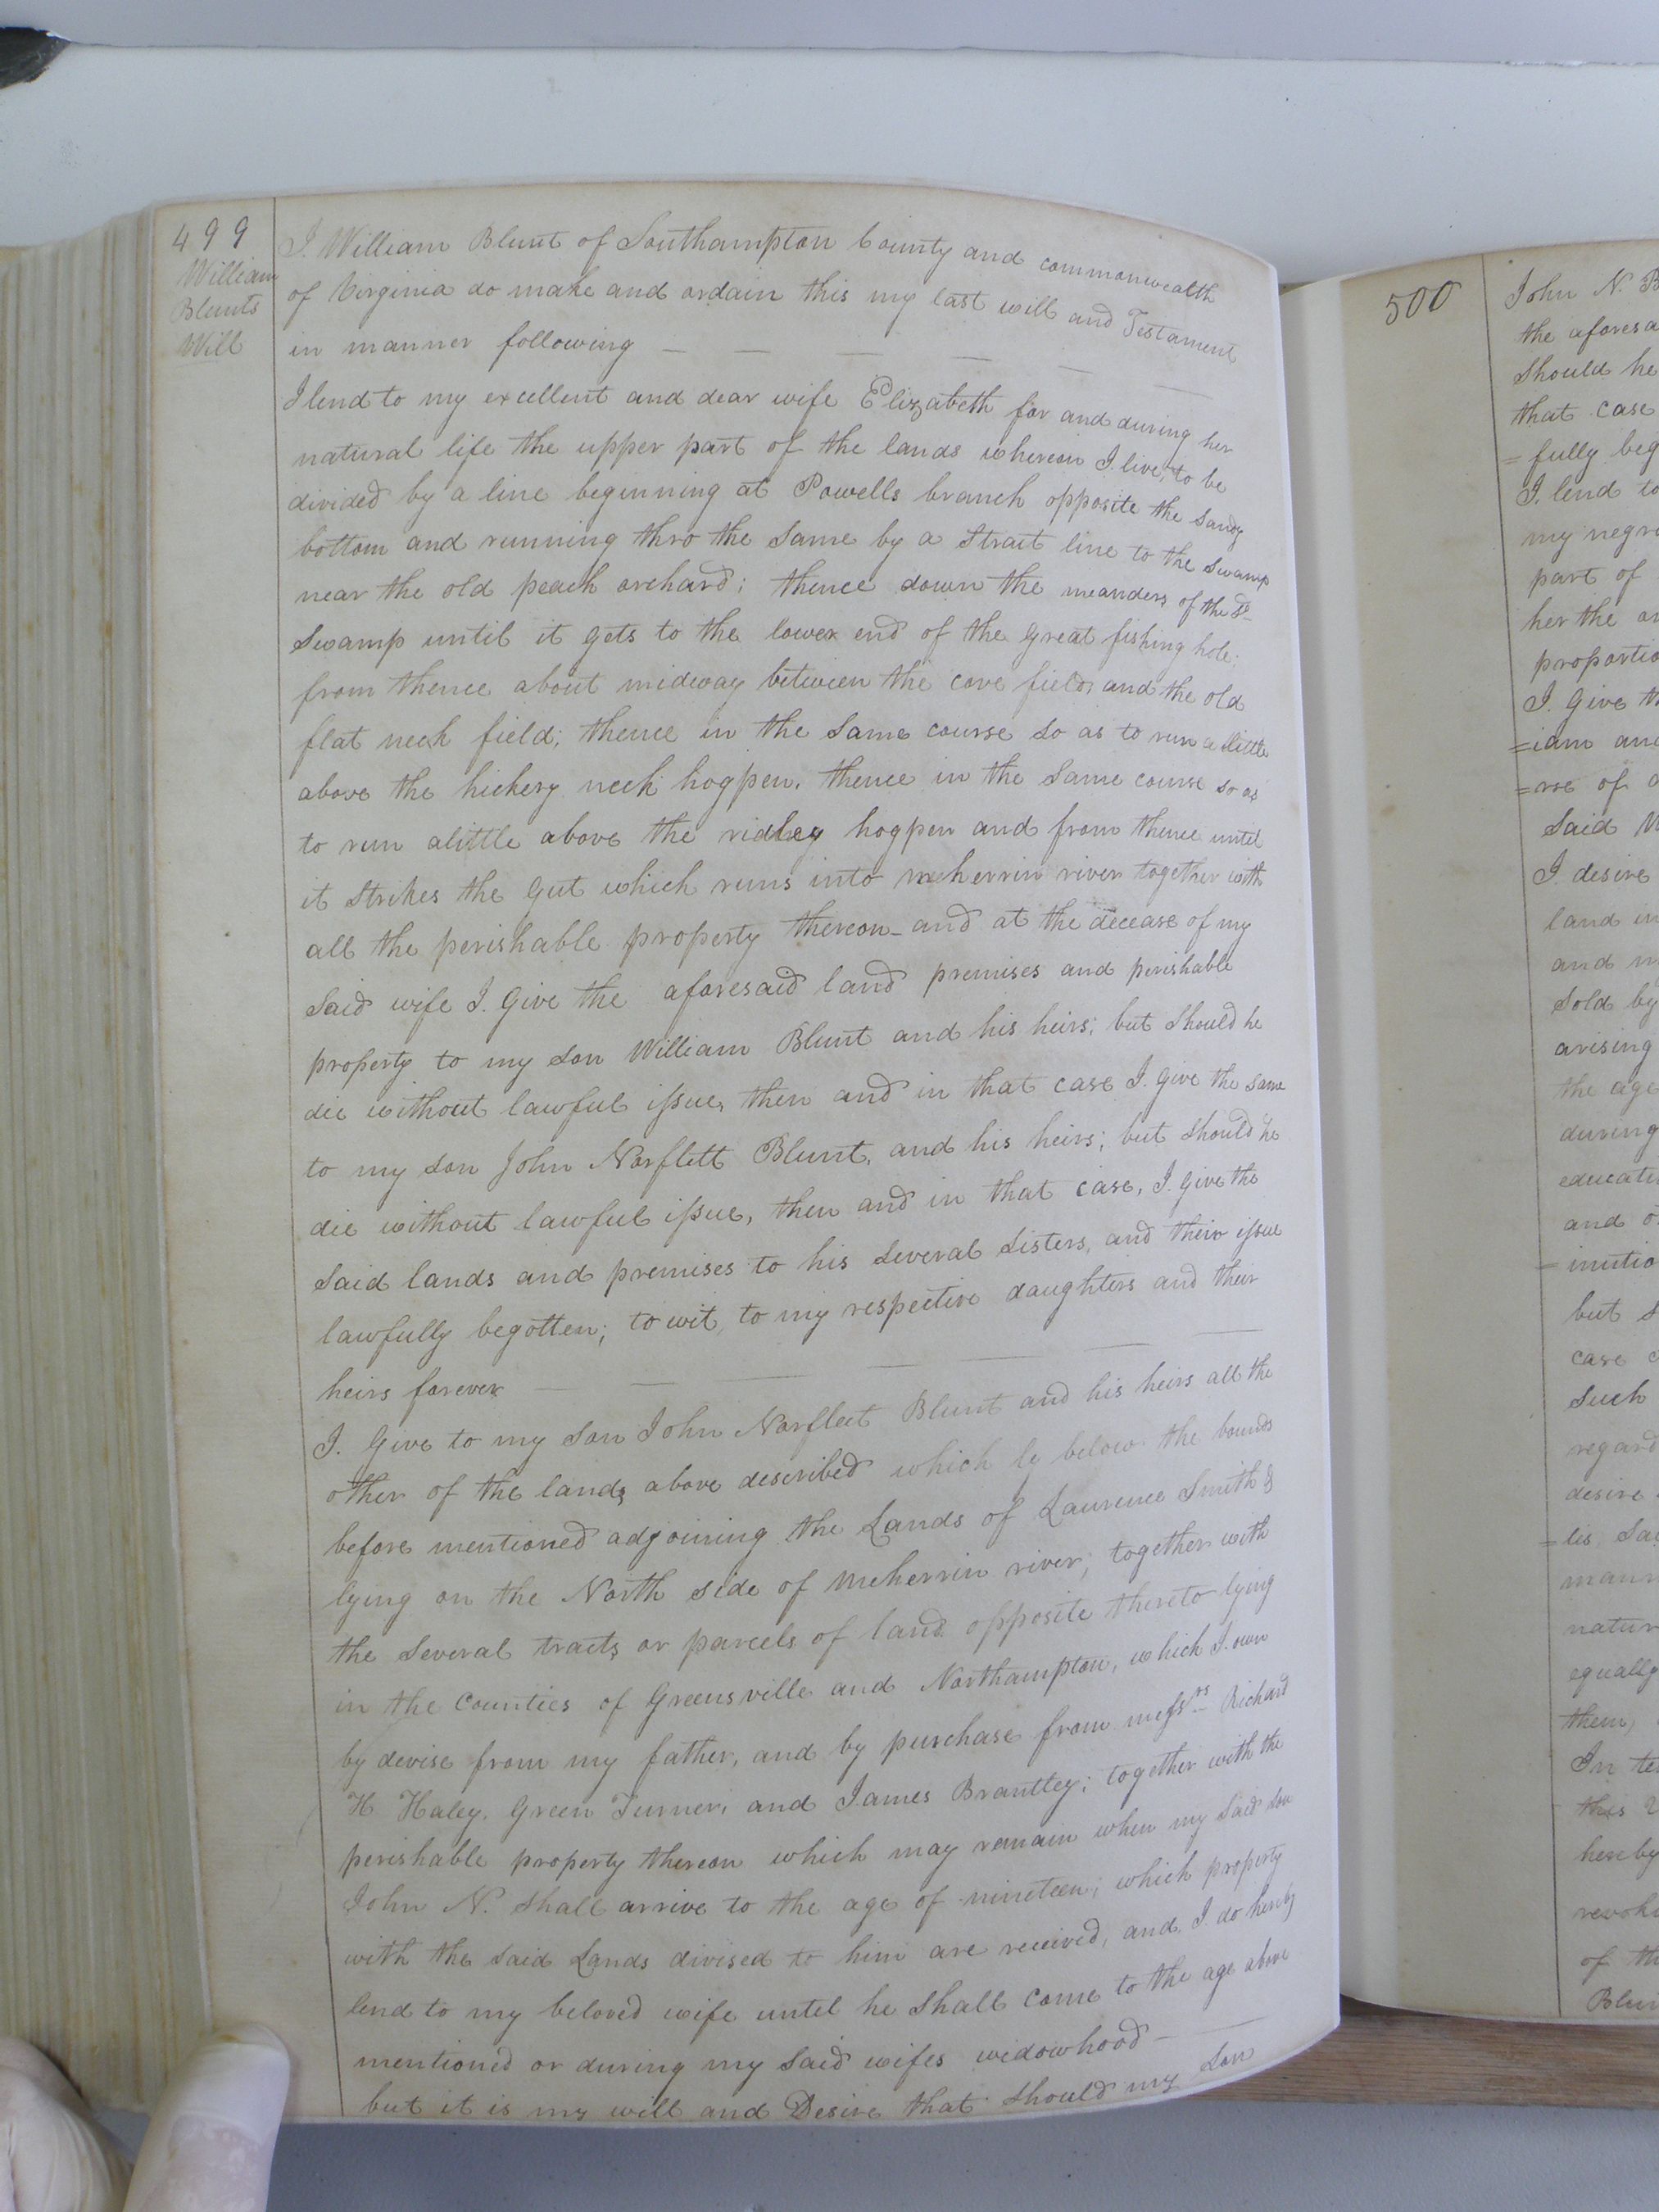 499
William
Blunts
Will
I. William Blunt of Southampton County and commonwealth
of Virginia do make and ordain this my last will and Testament
in manner following
I lend to my excellent and dear wife Elizabeth for and during her
natural life the upper part of the lands whereon I live, to be
divided by a line beginning at Powells branch opposite the sandy
bottom and running thro the Same by a Strait line to the swamp
near the old peach orchard; thence down the meanders of the sd
Swamp until it gets to the lower end of the great fishing hole;
from thence about midway between the cove field, and the old
flat neck field; thence in the Same course so as to run a little
above the hickery neck hogpen, thence in the Same course so as
to run alittle above the ridley hogpen and from thence until
it Strikes the Gut which runs into meherrin river together with
all the perishable property thereon - and at the decease of my
Said wife I. Give the aforesaid land premises and perishable
property to my son William Blunt and his heirs; but Should he
die without lawful issue, then and in that case I. Give the same
to my son John Norflett Blunt, and his heirs; but should he
die without lawful issue, then and in that case, I. Give the
Said lands and premises to his several sisters, and their issue
lawfully begotten; to wit, to my respective daughters and their
heirs forever
I. Give to my son John Norfleet Blunt and his heirs all the
other of the lands above described which ly below the bounds
before mentioned adjoining the Lands of Laurence Smith &
lying on the North side of meherrin river; together with
the Several tracts or parcels of land opposite thereto lying
in the Counties of Greensville and Northampton, which I. own
by devise from my father, and by purchase from messrs Richard
H. Haley, Green Turner, and James Brantley; together with the
perishable property thereon which may remain when my Said son
John N. Shall arrive to the age of nineteen; which property
with the Said Lands divised to him are received, and I. do hereby
lend to my beloved wife until he Shall come to the age above
mentioned or during my Said wifes widowhood -
but it is my will and Desire that Should my Son
500
John N. B
the aforesa
Should he
that case
= fully beg
I. lend to
my negro
part of
her the
proportio
I. Give th
=iam and
=rse of
Said W
I. desire
land in
and m
Sold by
arising
the age
during
educati
and
=
but S
case
Such
regard
desire
=lis Sa
mann
natur
equally
them,
In te
this
hereby
revoki
of th
Blun